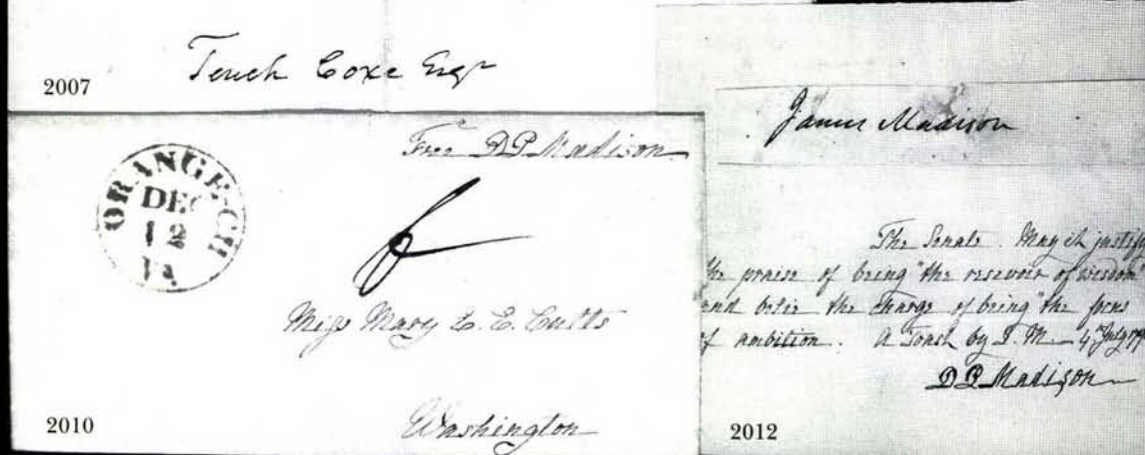 Tench Coxe Esqr
2007
Free D P Madison
ORANGE C.H
DEC
12
Va
Miss Mary E. E. Cutts
Washington
2010
James Madison
The Senate. May it justify
the praise of being "the resevoir of wisdom"
and belie the charge of being "the focus
of ambition. A Toast by J. M. 4 July
D P Madison
2012